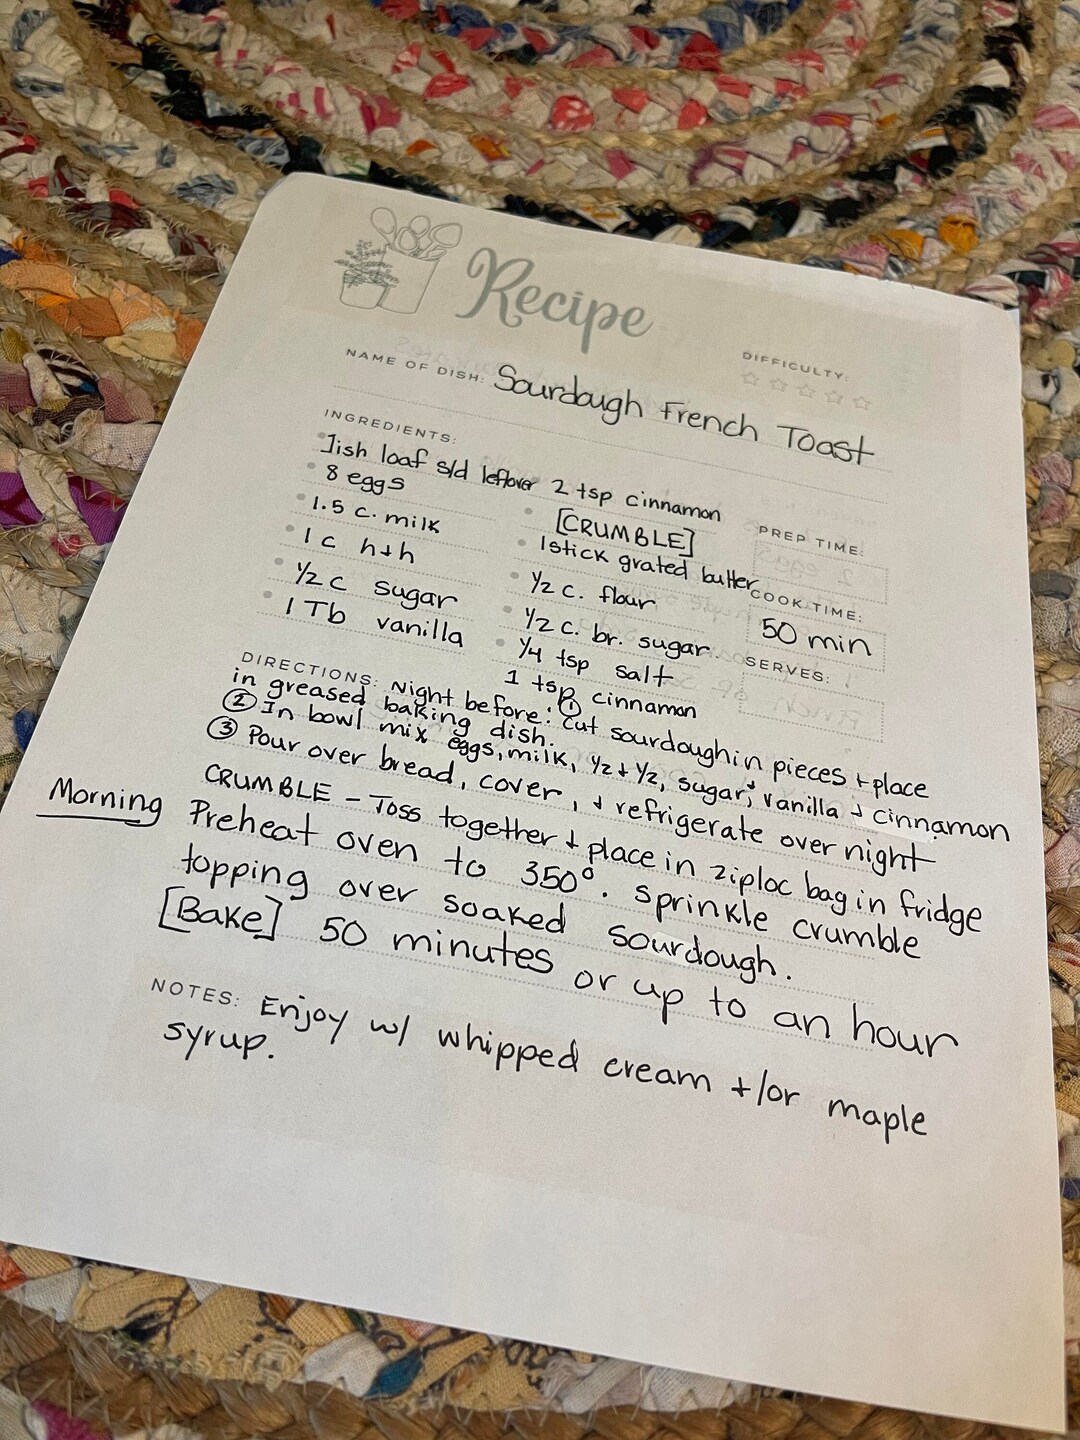 Recipe
DIFFICULTY:
NAME OF DISH: Sourdough French Toast
INGREDIENTS:
1ish loaf s/d leftover
8 eggs
1.5 c. milk
1 c h+h
1/2 c sugar
1 Tb vanilla
2 tsp cinnamon
[CRUMBLE]
1 stick grated butter
1/2 c. flour
1/2 c. br. sugar
1/4 tsp salt
1 tsp cinnamon
PREP TIME:
COOK TIME:
50 min
SERVES:
DIRECTIONS: Night before: ① Cut sourdough in pieces + place
in greased baking dish.
② In bowl mix eggs, milk, 1/2 + 1/2, sugar, + vanilla + cinnamon
③ Pour over bread, cover, + refrigerate over night
CRUMBLE - Toss together + place in ziploc bag in fridge
Morning Preheat oven to 350°. Sprinkle crumble
topping over soaked sourdough.
[Bake] 50 minutes or up to an hour
NOTES: Enjoy w/ whipped cream +/or maple
syrup.